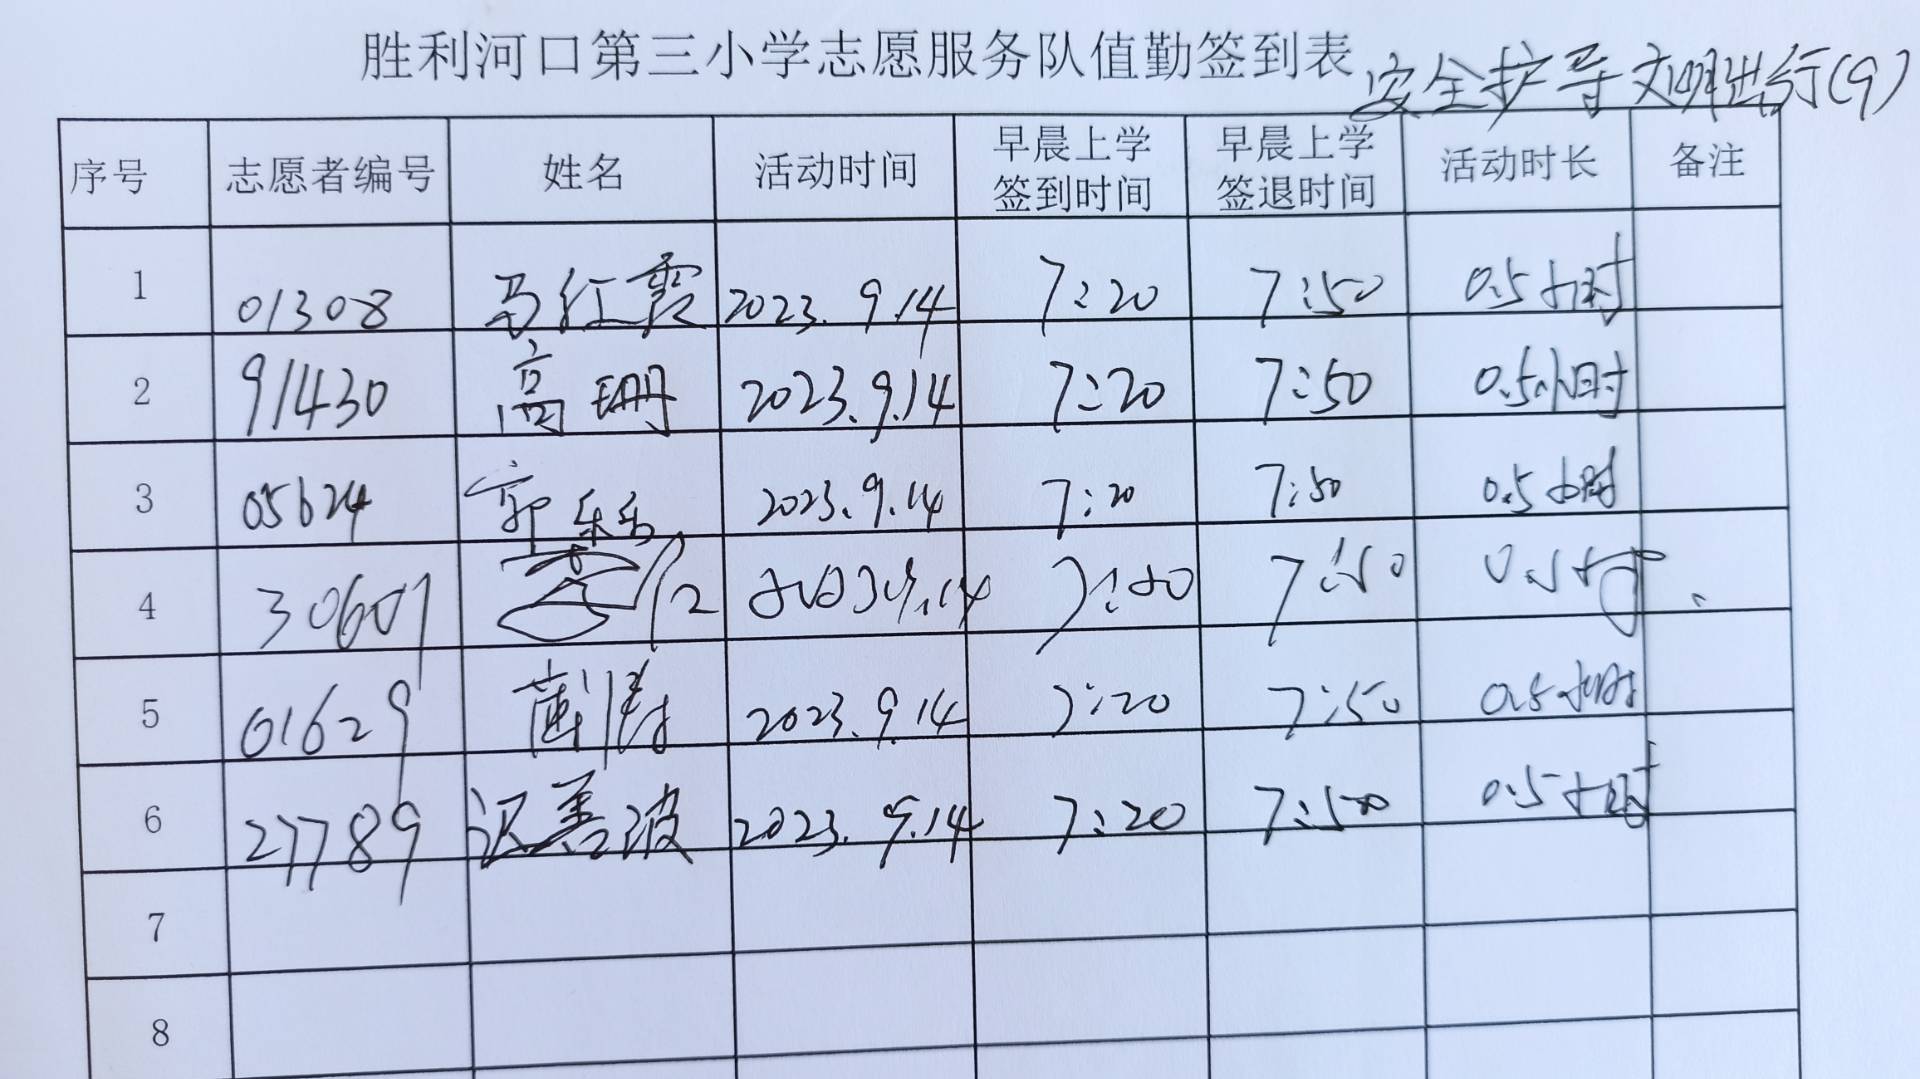 胜利河口第三小学志愿服务队值勤签到表
安全护导 文明出行(9)
序号 志愿者编号 姓名 活动时间 早晨上学签到时间 早晨上学签退时间 活动时长 备注
1 01308 马红霞 2023.9.14 7:20 7:50 0.5小时
2 91430 高珊 2023.9.14 7:20 7:50 0.5小时
3 05624 郭乐乐 2023.9.14 7:20 7:50 0.5小时
4 30607 2023.9.14 7:20 7:50 0.5小时
5 01629 2023.9.14 7:20 7:50 0.5小时
6 27789 善波 2023.9.14 7:20 7:50 0.5小时
7
8